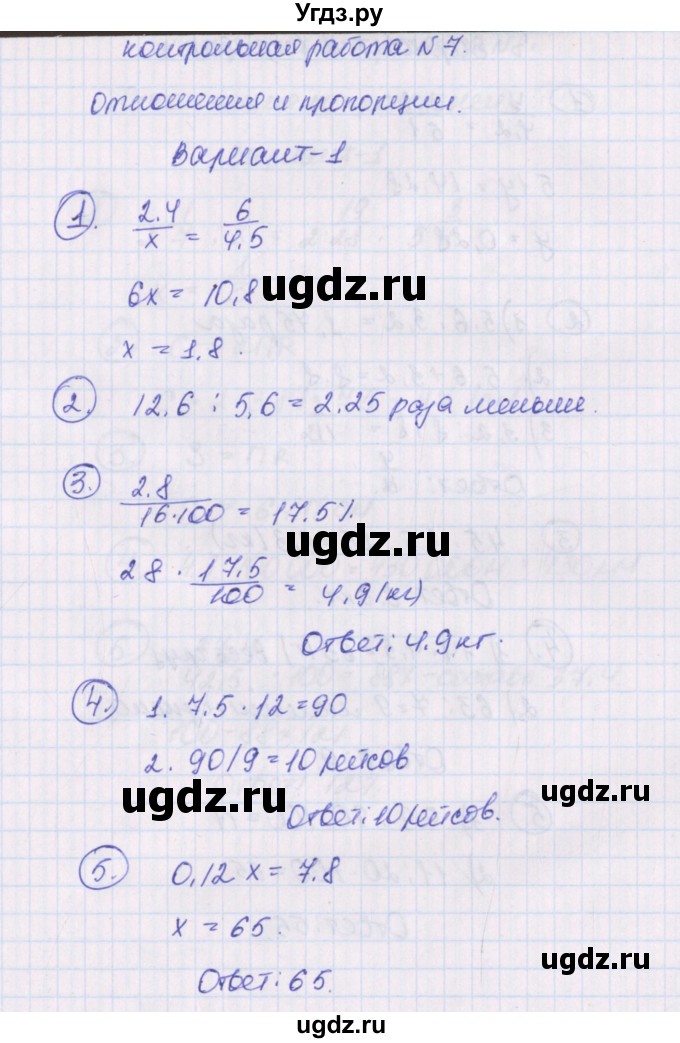 Угдз.ру
контрольная работа №7.
Отношения и пропорции.
Вариант-1
1. 2.4/x = 6/4.5
6x = 10,8
x = 1,8.
2. 12,6 : 5,6 = 2.25 раза меньше.
3. 2.8/16·100 = 17.5%
28 · 17.5/100 = 4.9(кг)
Ответ: 4.9кг.
4. 1. 7.5·12=90
2. 90/9=10 рейсов
Ответ: 10 рейсов.
5. 0,12x = 7.8
x = 65.
Ответ: 65.
ugdz.ru
ugdz.ru
ugdz.ru
ugdz.ru
ugdz.ru
ugdz.ru